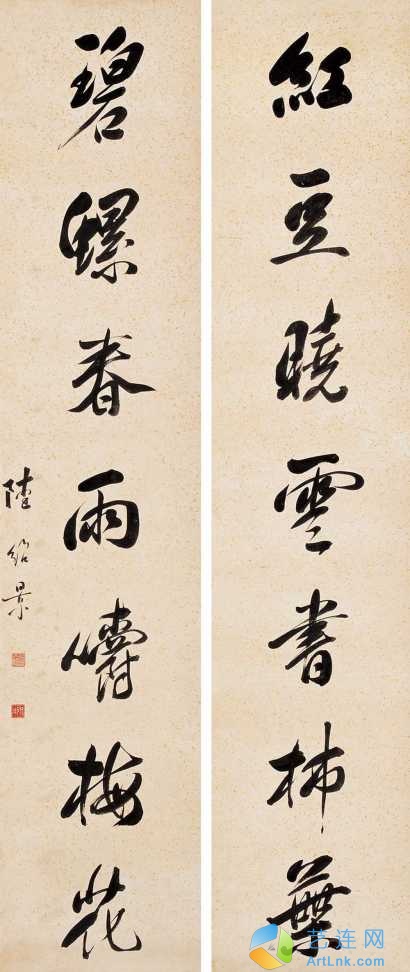 紅豆曉雲書柿葉
碧螺春雨嚼梅花
陸紹景
艺连网
ArtLnk.com